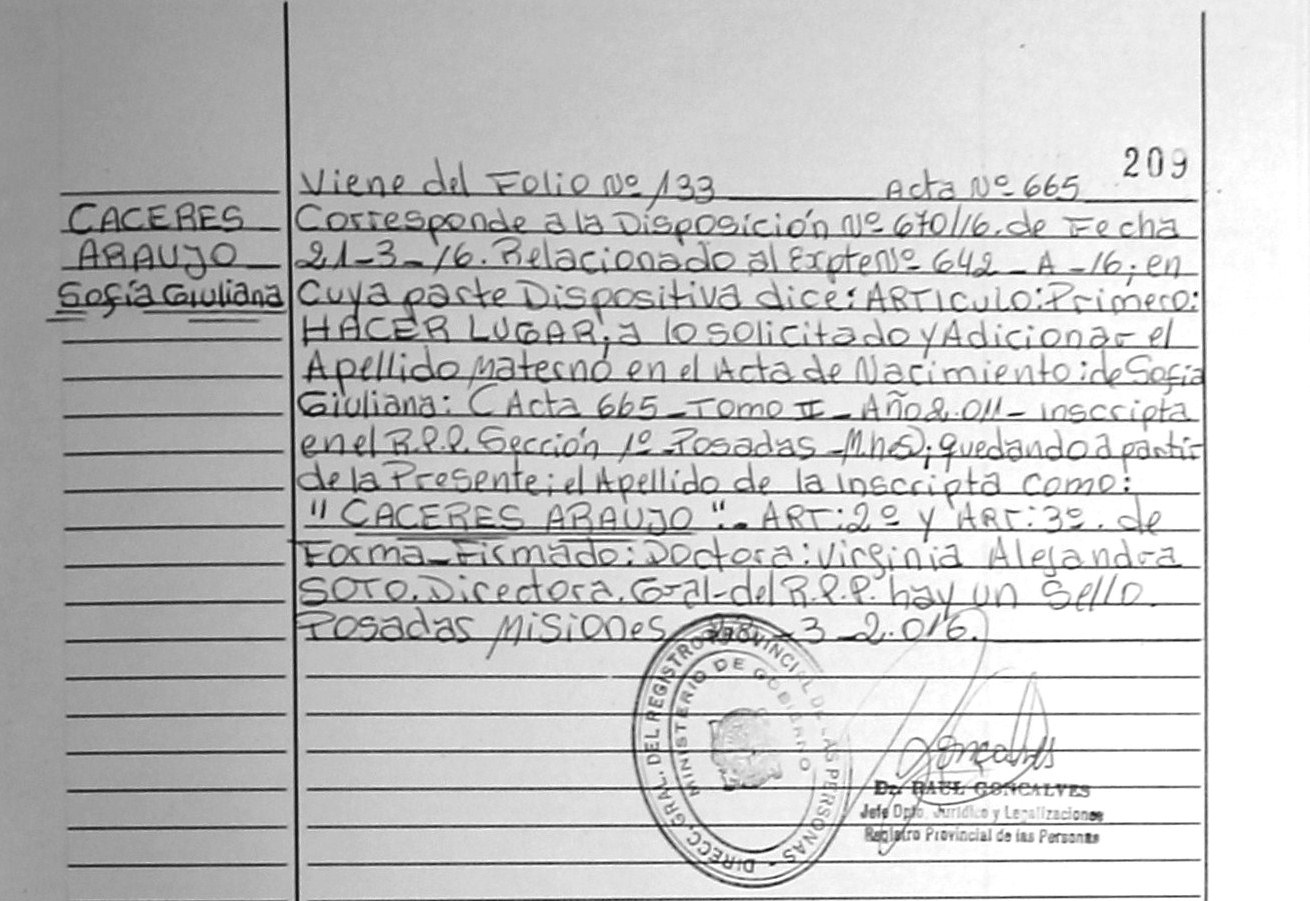 209
Viene del Folio Nº 133 Acta Nº 665
CACERES
ARAUJO
Sofía Giuliana
Corresponde a la Disposición Nº 670/16. de Fecha
21-3-16. Relacionado al Expte Nº 642-A-16; en
Cuya parte Dispositiva dice: ARTICULO: Primero:
HACER LUGAR; a lo solicitado y Adicionar el
Apellido Materno en el Acta de Nacimiento: de Sofia
Giuliana: (Acta 665-Tomo II-Año 2.011-inscripta
en el R.P.P. Sección 1º-Posadas-Mnes); quedando a partir
de la Presente; el Apellido de la inscripta como:
"CACERES ARAUJO".- ART: 2º y ART: 3º. de
Forma-Firmado: Doctora: Virginia Alejandra
SOTO. Directora. Gral-del R.P.P. hay un Sello.
Posadas Misiones -3-2.016.
DIRECC. GRAL. DEL REGISTRO PROVINCIAL DE LAS PERSONAS
MINISTERIO DE GOBIERNO
Goncalves
Dr. RAUL GONCALVES
Jefe Dpto. Jurídico y Legalizaciones
Registro Provincial de las Personas